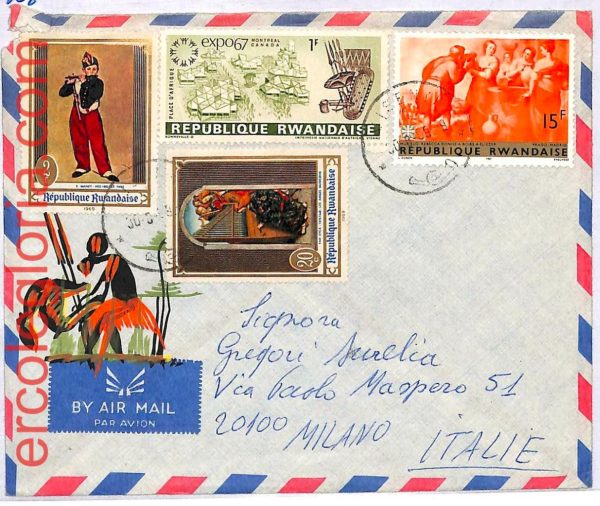 2
F. MANET
République Rwandaise
1969
expo67 MONTREAL CANADA
1F
PLACE D'AFRIQUE
REPUBLIQUE RWANDAISE
15F
REPUBLIQUE RWANDAISE
20c
République Rwandaise
1969
BY AIR MAIL
PAR AVION
Signora
Gregori Aurelia
Via Paolo Maspero 51
20100
MILANO
ITALIE
ercolegloria.com